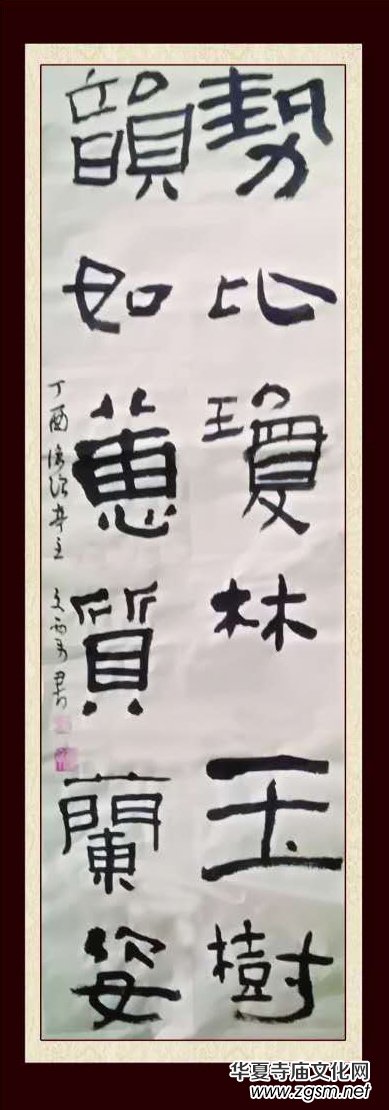 勢比瓊林玉樹
韻如蕙質蘭姿
丁酉
文
書
华夏寺庙文化网
www.zgsm.net